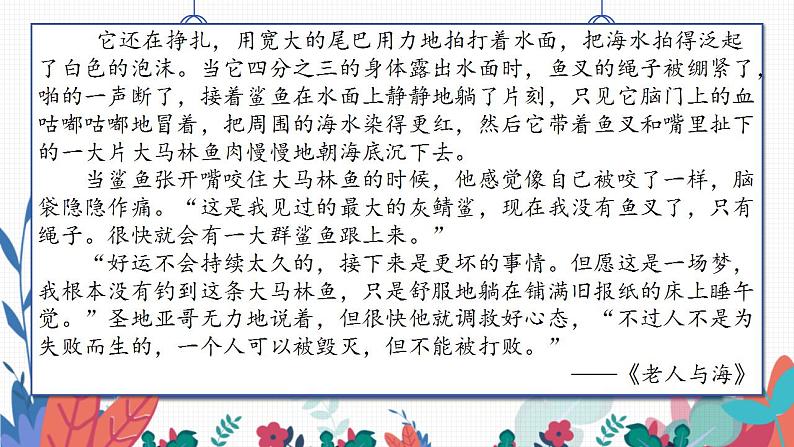 它还在挣扎，用宽大的尾巴用力地拍打着水面，把海水拍得泛起
了白色的泡沫。当它四分之三的身体露出水面时，鱼叉的绳子被绷紧了，
啪的一声断了，接着鲨鱼在水面上静静地躺了片刻，只见它脑门上的血
咕嘟咕嘟地冒着，把周围的海水染得更红，然后它带着鱼叉和嘴里扯下
的一大片大马林鱼肉慢慢地朝海底沉下去。
当鲨鱼张开嘴咬住大马林鱼的时候，他感觉像自己被咬了一样，脑
袋隐隐作痛。“这是我见过的最大的灰鲭鲨，现在我没有鱼叉了，只有
绳子。很快就会有一大群鲨鱼跟上来。”
“好运不会持续太久的，接下来是更坏的事情。但愿这是一场梦，
我根本没有钓到这条大马林鱼，只是舒服地躺在铺满旧报纸的床上睡午
觉。”圣地亚哥无力地说着，但很快他就调救好心态，“不过人不是为
失败而生的，一个人可以被毁灭，但不能被打败。”
——《老人与海》